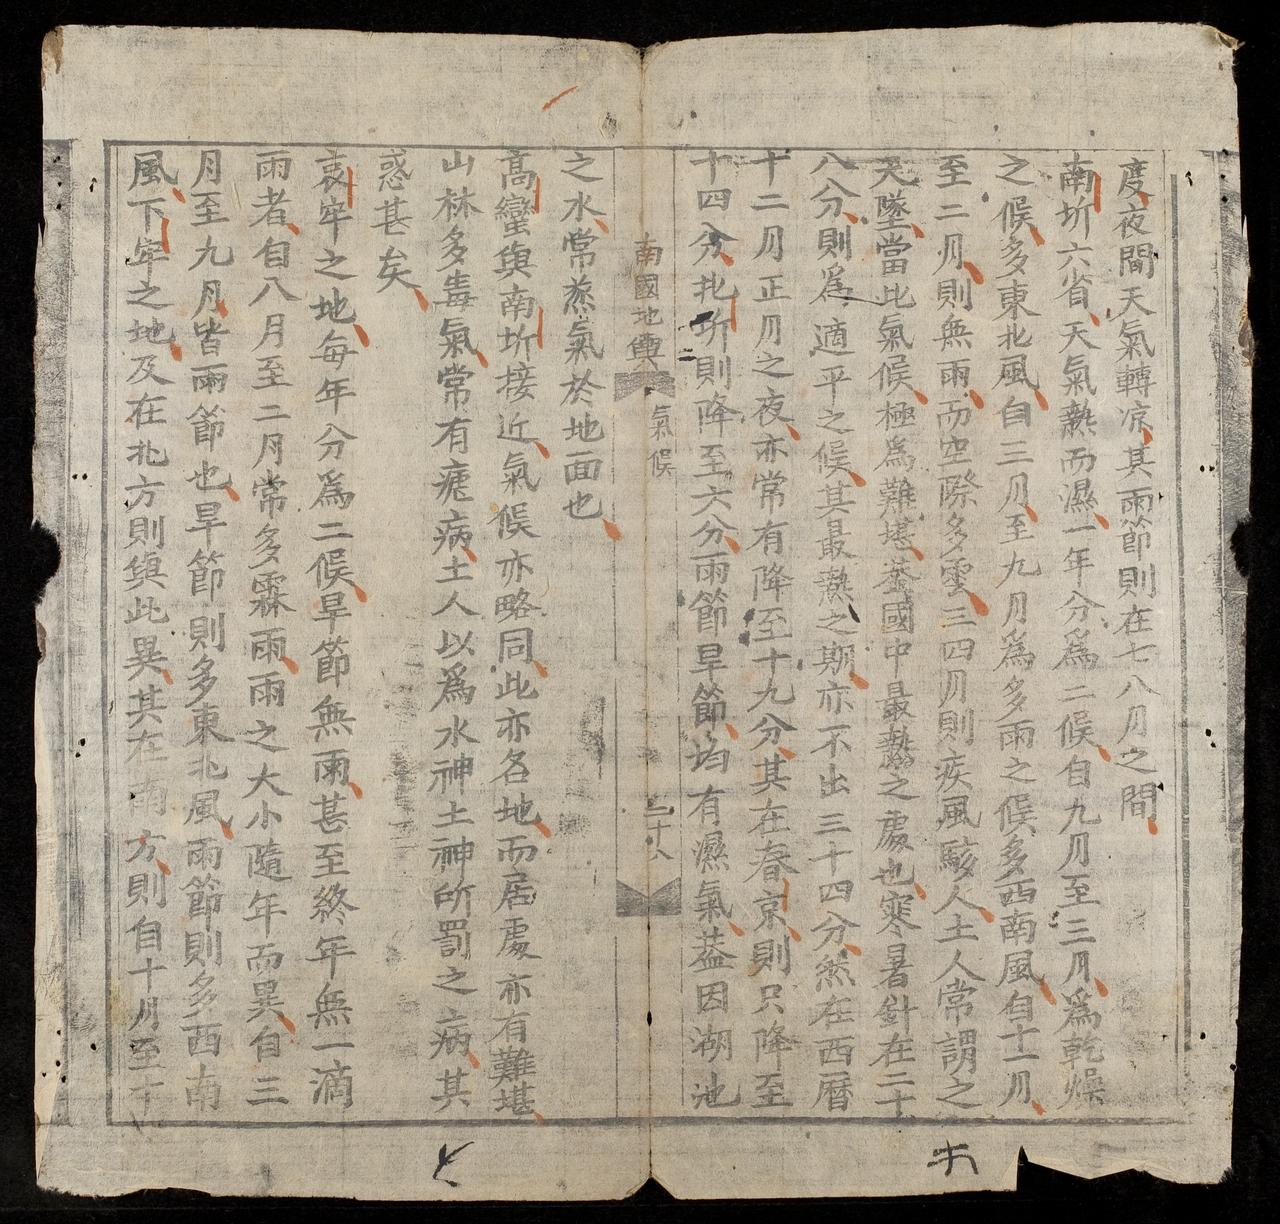 度夜間天氣轉凉其雨節則在七八月之間
南圻六省天氣熱而濕一年分爲二候自九月至三月爲乾燥
之候多東北風自三月至九月爲多雨之候多西南風自十一月
至二月則無雨而空際多雲三四月則疾風駭人土人常謂之
天墜當此氣候極爲難堪葢國中最熱之處也寒暑針在二十
八分則爲適平之候其最熱之期亦不出三十四分然在西曆
十二月正月之夜亦常有降至十九分其在春京則只降至
十四分北圻則降至六分雨節旱節均有濕氣葢因湖池
南國地輿 氣候 二十八
之水常蒸氣於地面也
高蠻與南圻接近氣候亦略同此亦名地而居處亦有難堪
山林多毒氣常有瘧病土人以爲水神土神所罰之病其
惑甚矣
哀牢之地每年分爲二候旱節無雨甚至終年無一滴
雨者自八月至二月常多霖雨雨之大小隨年而異自三
月至九月皆雨節也旱節則多東北風雨節則多西南
風下牢之地及在北方則與此異其在南方則自十月至十